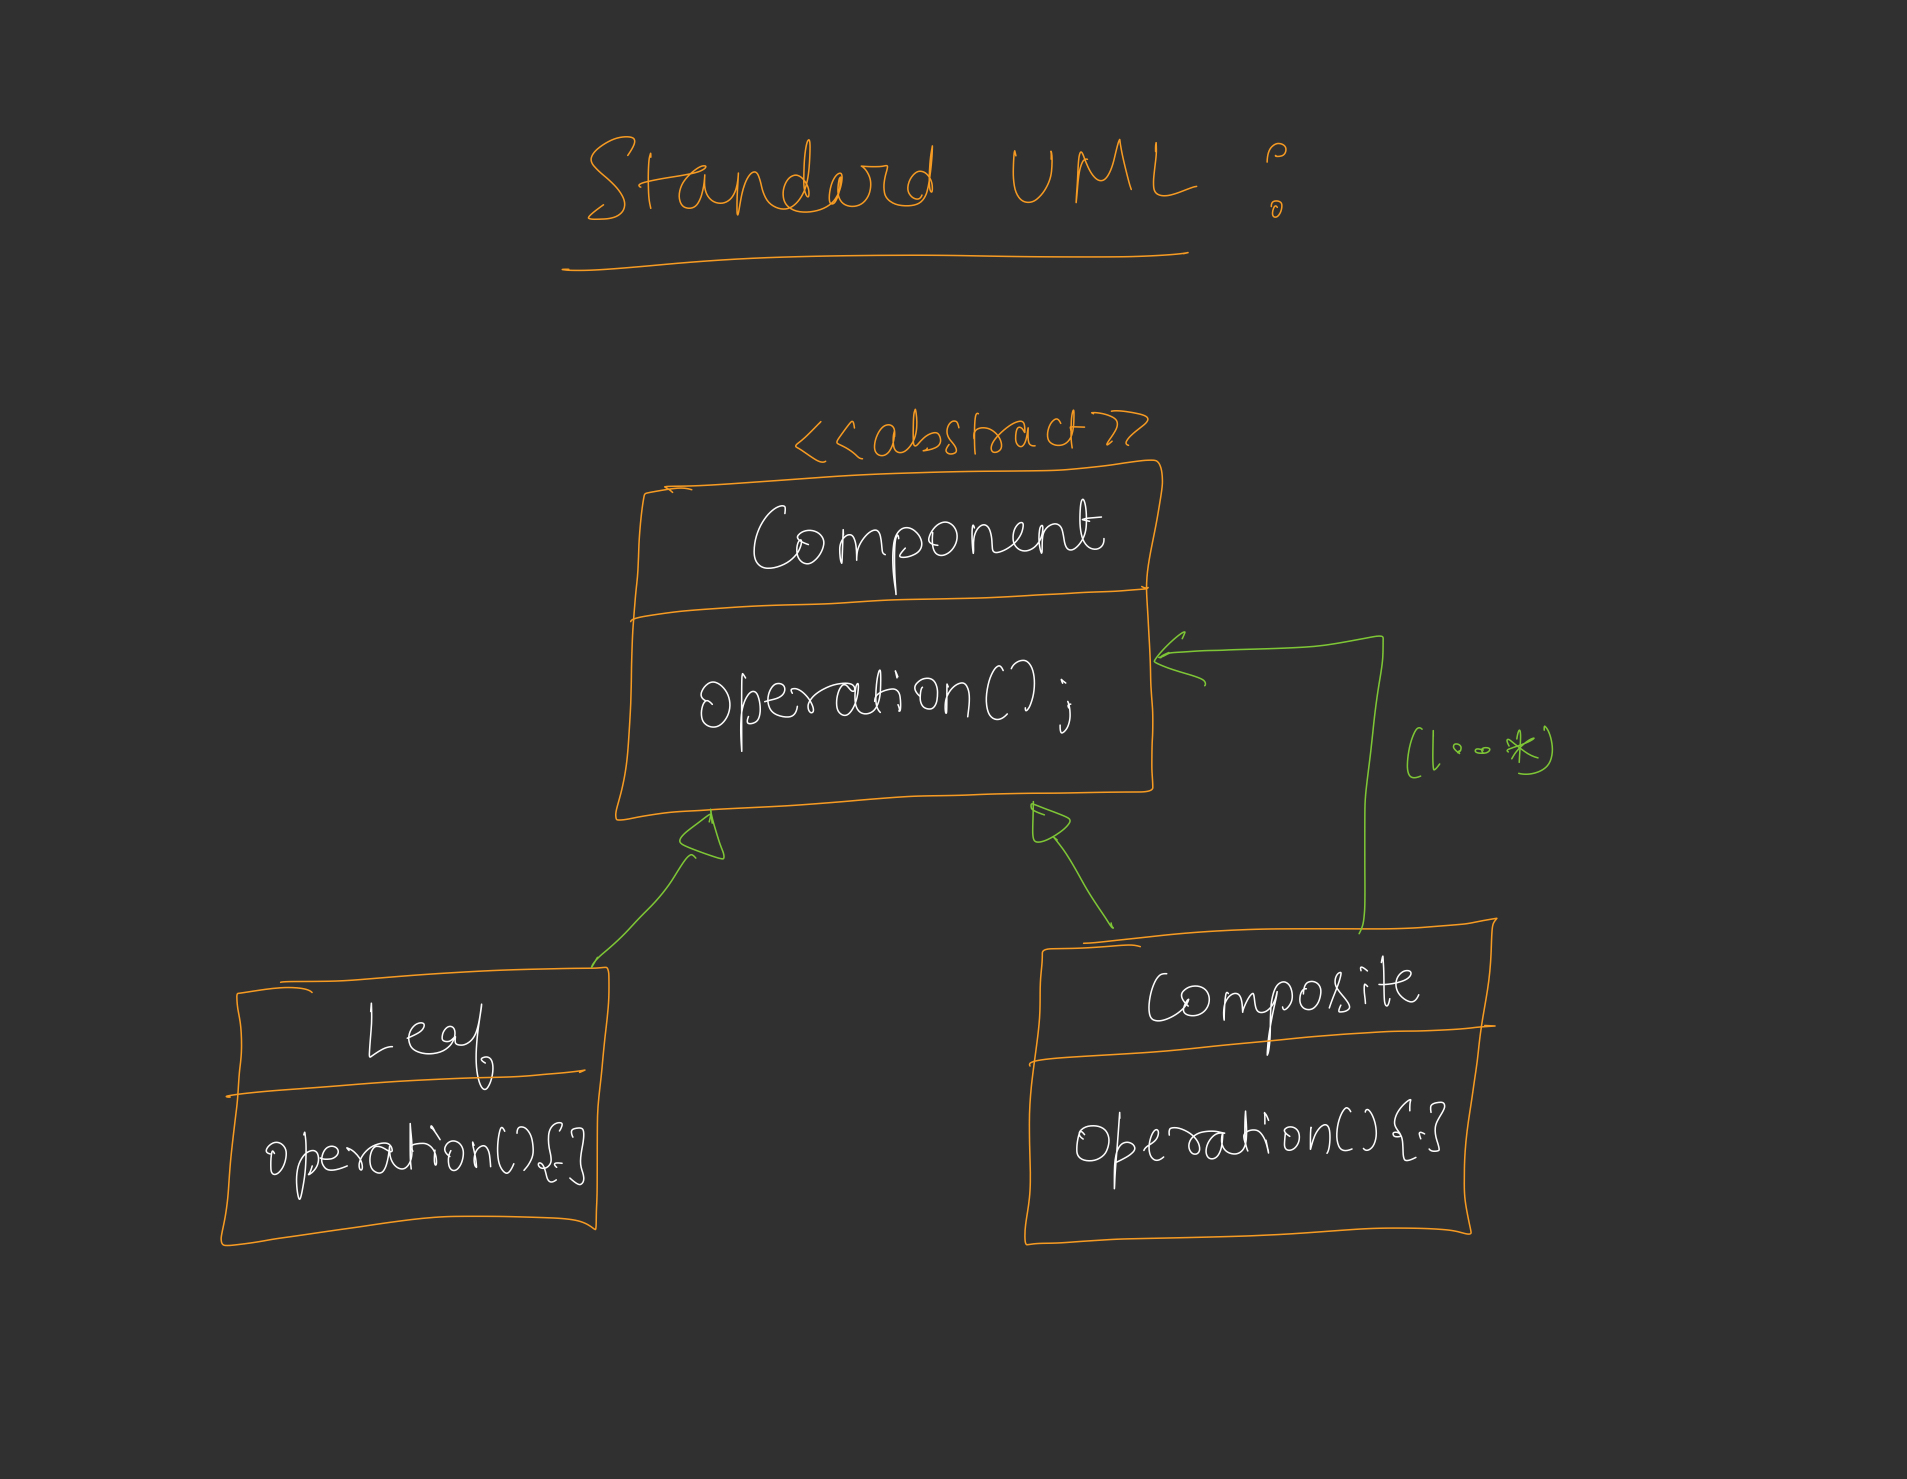 Standard UML :
<<abstract>>
Component
operation();
(1..*)
Leaf
operation(){.}
Composite
operation(){.}